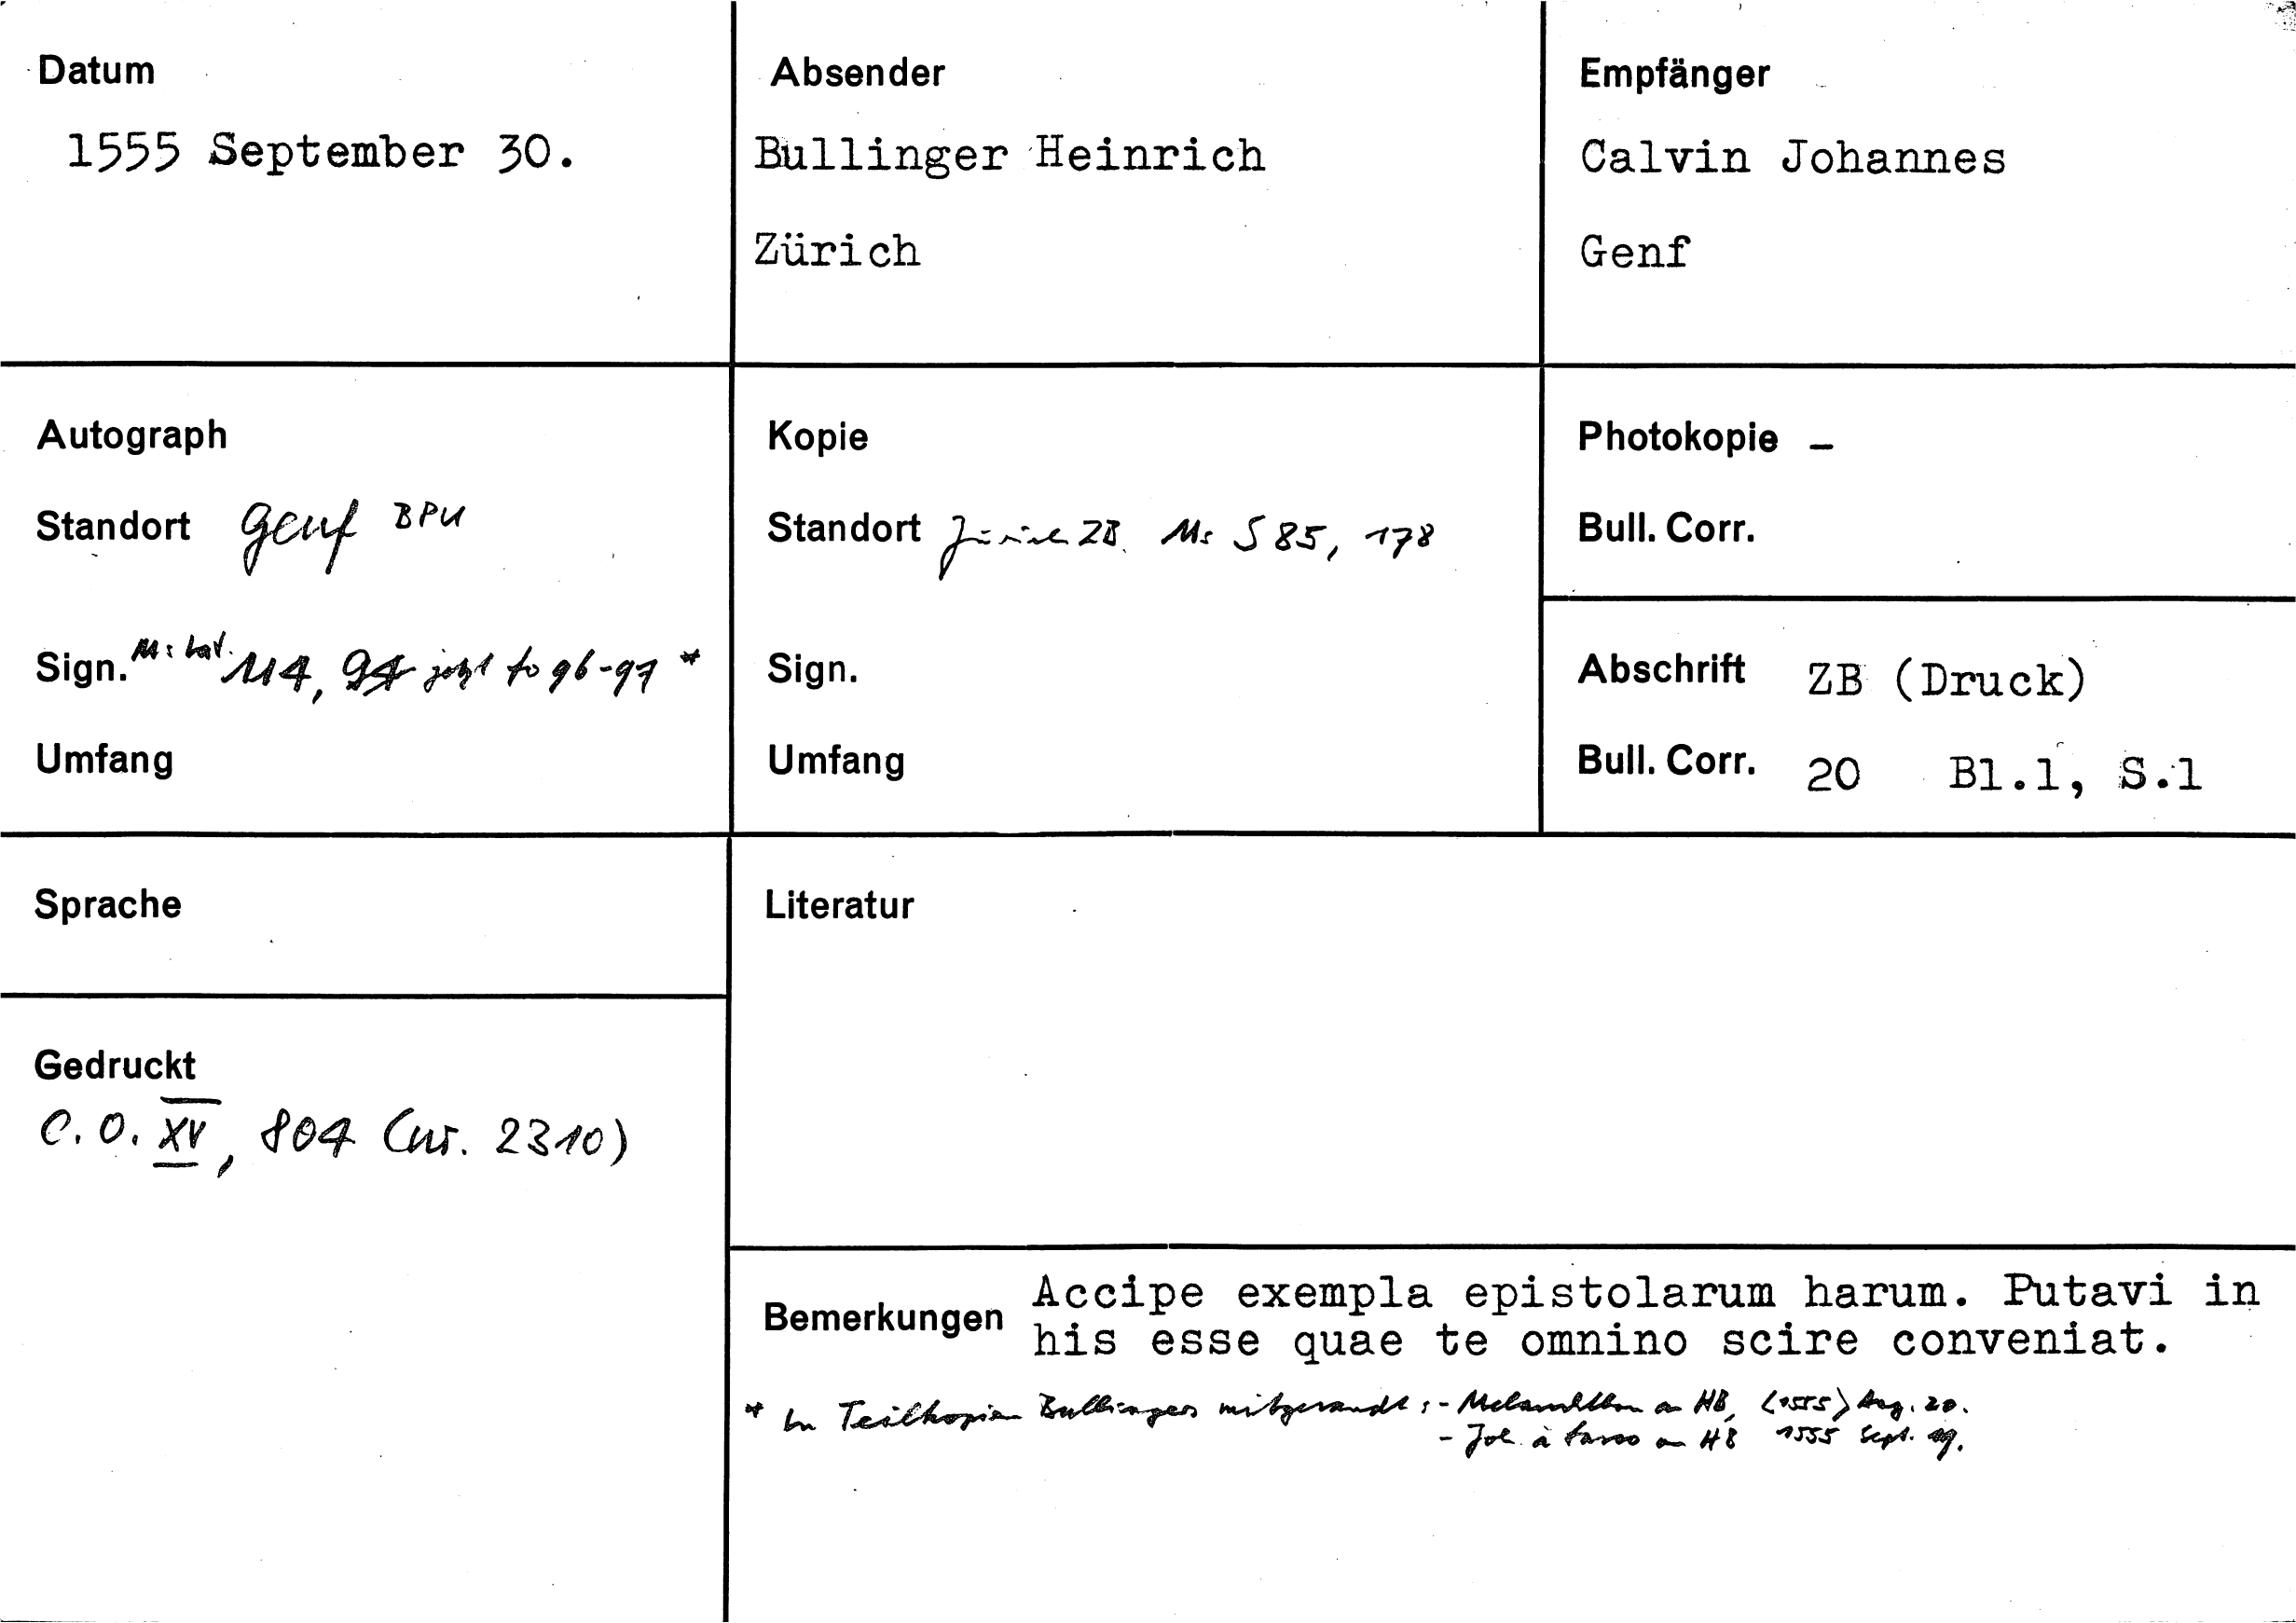 Datum
1555 September 30.
Absender
Bullinger Heinrich
Zürich
Empfänger
Calvin Johannes
Genf
Autograph
Standort Genf BPU
Sign. Ms lat. 114, 94 jetzt fo 96-97 *
Umfang
Kopie
Standort Zürich ZB. Ms S 85, 178
Sign.
Umfang
Photokopie –
Bull. Corr.
Abschrift ZB (Druck)
Bull. Corr. 20 Bl.1, S.1
Sprache
Gedruckt
C.O. XV, 804 (nr. 2310)
Literatur
Bemerkungen
Accipe exempla epistolarum harum. Putavi in
his esse quae te omnino scire conveniat.
* In Teilkopien Bullingers mitgesandt: - Melanchthon an HB, <1555> Aug. 20.
- Joh. à Lasco an HB 1555 Sept. 19.